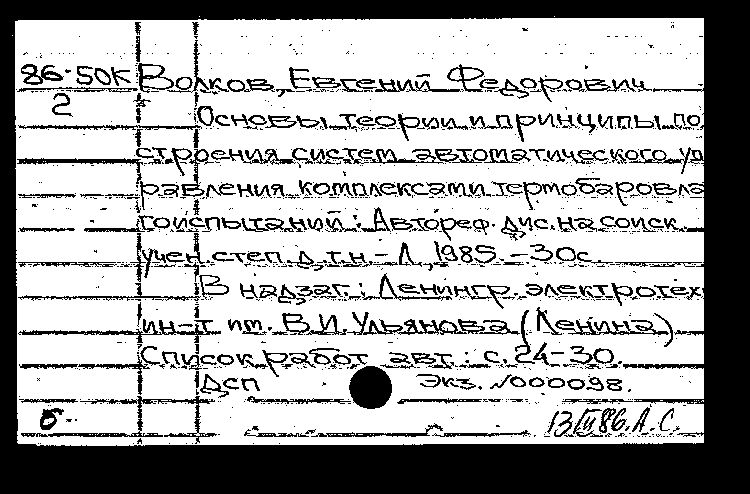 86-50К Волков, Евгений Федорович
2
Основы теории и принципы по
строения систем автоматического уп
равления комплексами термобаровла
гоиспытаний : Автореф. дис. на соиск.
учен. степ. д.т.н - Л., 1985. - 30с.
В надзаг. : Ленингр. электротех
ин-т им. В.И. Ульянова (Ленина)
Список работ авт. : с. 24-30.
Дсп Экз. №000098.
б. 13/III86. А. С.